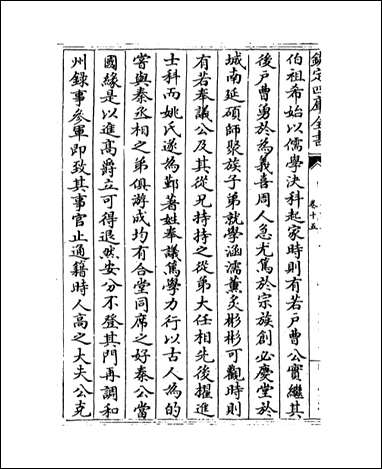 欽定四庫全書
卷十五
伯祖希始以儒學決科起家時則有若戸曹公實繼其
後戸曹勇於為義喜周人急尤篤於宗族創必慶堂於
城南延碩師聚族子弟就學涵濡薫炙彬彬可觀時則
有若奉議公及其從兄持持之從弟大任相先後擢進
士科而姚氏遂為鄞著姓奉議篤學力行以古人為的
嘗與秦丞相之弟俱游成均有合堂同席之好秦公當
國緣是以進髙爵立可得退然安分不登其門再調和
州錄事參軍即致其事官止通籍時人高之大夫公克